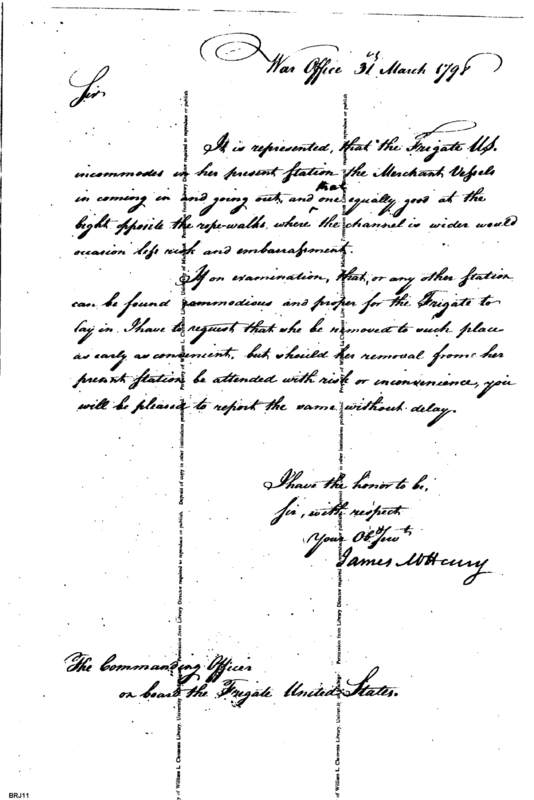 War Office 31st March 1798
Sir
It is represented, that the Frigate U,S.
incommodes in her present station the Merchant Vessels
in coming in and going out, and that one equally good at the
bight opposite the rope-walks, where the channel is wider would
occasion less risk and embarrassment.
If on examination, that, or any other station
can be found commodious and proper for the Frigate to
lay in. I have to request that she be removed to such place
as early as convenient, but should her removal from her
present station be attended with risk or inconvenience, you
will be pleased to report the same without delay.
I have the honor to be,
Sir, with respect
Your Obt Servt
James McHenry
The Commanding Officer
on board the Frigate United States.
BRJ11